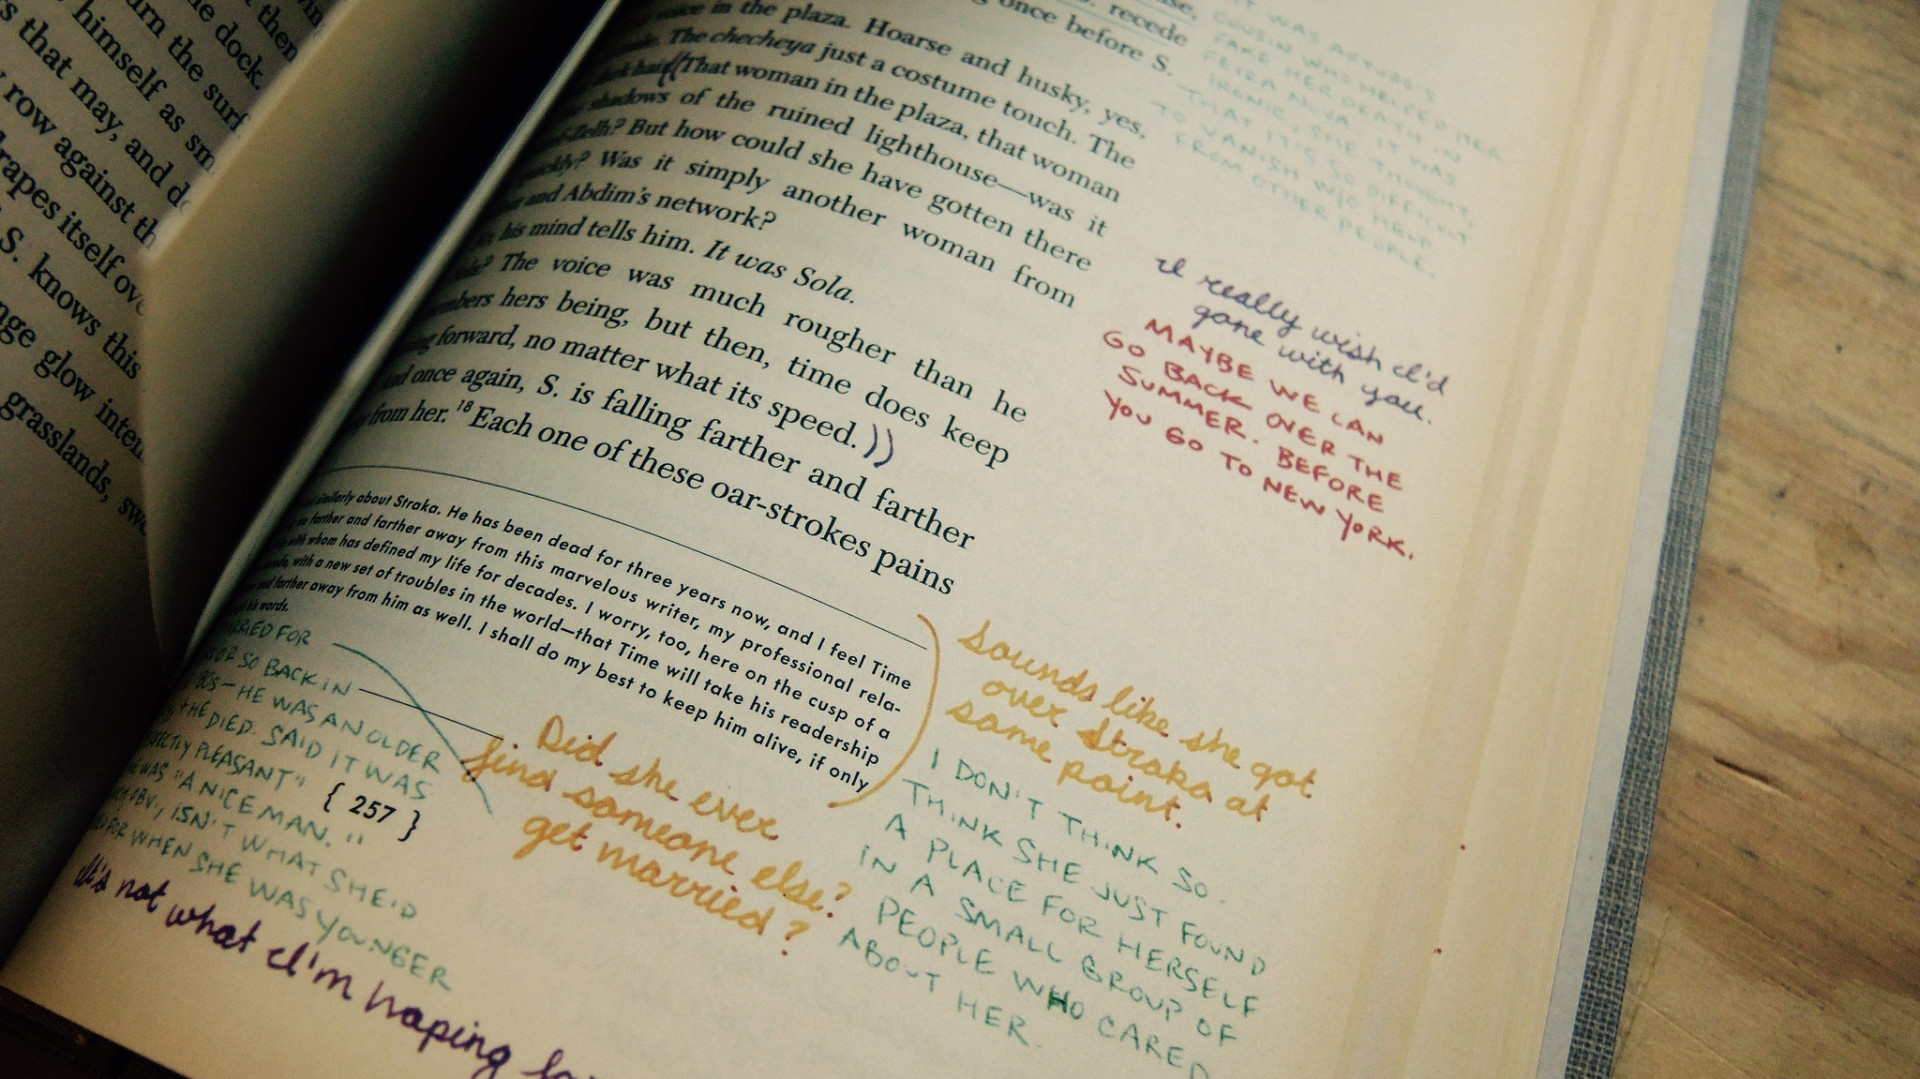 then
the dock.
turn the surf
himself as sm
s that may, and d
row against th
drapes itself ov
S. knows this
nge glow inten
grasslands, swe
recede
once before S.
voice in the plaza. Hoarse and husky, yes,
The checheya just a costume touch. The
dark hair((That woman in the plaza, that woman
shadows of the ruined lighthouse—was it
But how could she have gotten there
Was it simply another woman from
and Abdim's network?
his mind tells him. It was Sola.
The voice was much rougher than he
hers being, but then, time does keep
forward, no matter what its speed.))
once again, S. is falling farther and farther
from her.18 Each one of these oar-strokes pains
similarly about Straka. He has been dead for three years now, and I feel Time
farther and farther away from this marvelous writer, my professional rela-
with whom has defined my life for decades. I worry, too, here on the cusp of a
with a new set of troubles in the world—that Time will take his readership
and farther away from him as well. I shall do my best to keep him alive, if only
his words.
{ 257 }
IT WAS ARTURO'S
COUSIN WHO HELPED HER
FAKE HER DEATH IN
FEIRA NOVA. IT WAS
IRONIC, SHE THOUGHT,
THAT IT IS SO DIFFICULT
TO VANISH W/O HELP
FROM OTHER PEOPLE.
I really wish I'd
gone with you.
MAYBE WE CAN
GO BACK OVER THE
SUMMER. BEFORE
YOU GO TO NEW YORK.
Sounds like she got
over Straka at
some point.
I DON'T THINK SO.
THINK SHE JUST FOUND
A PLACE FOR HERSELF
IN A SMALL GROUP OF
PEOPLE WHO CARED
ABOUT HER.
Did she ever
find someone else?
get married?
FOR
OR SO BACK IN
80s—HE WAS AN OLDER
HE DIED. SAID IT WAS
PLEASANT"
WAS "A NICE MAN."
OBV., ISN'T WHAT SHE'D
FOR WHEN SHE WAS YOUNGER
It's not what I'm hoping for